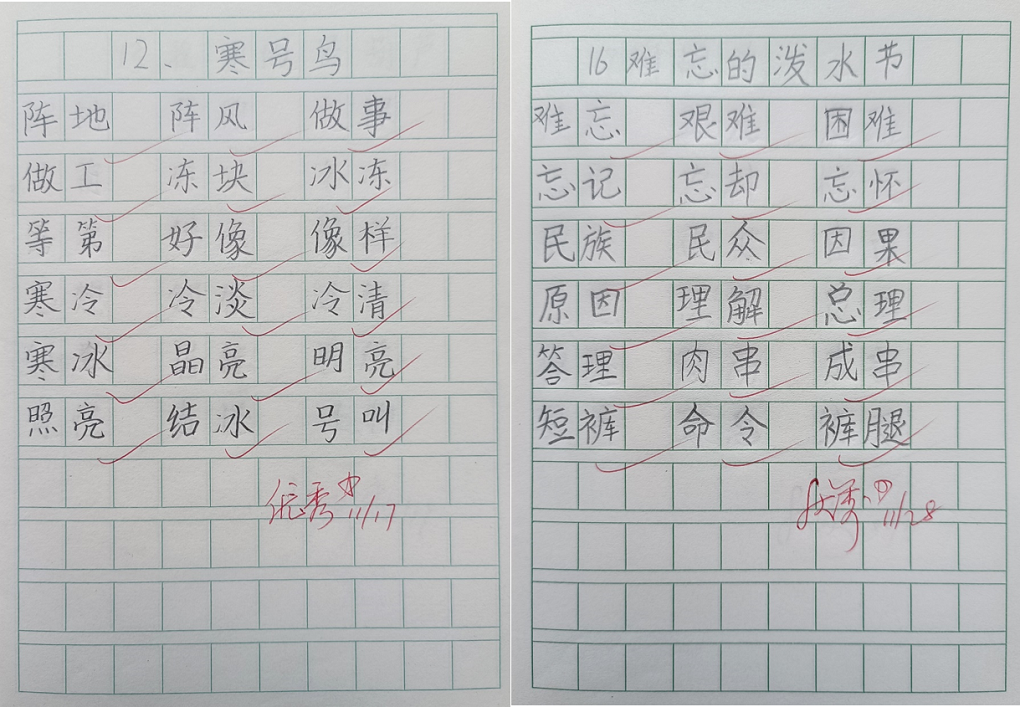 12、寒号鸟
阵地 阵风 做事
做工 冻块 冰冻
等第 好像 像样
寒冷 冷淡 冷清
寒冰 晶亮 明亮
照亮 结冰 号叫
优秀 11/17
16 难忘的泼水节
难忘 艰难 困难
忘记 忘却 忘怀
民族 民众 因果
原因 理解 总理
答理 肉串 成串
短裤 命令 裤腿
优秀 11/28